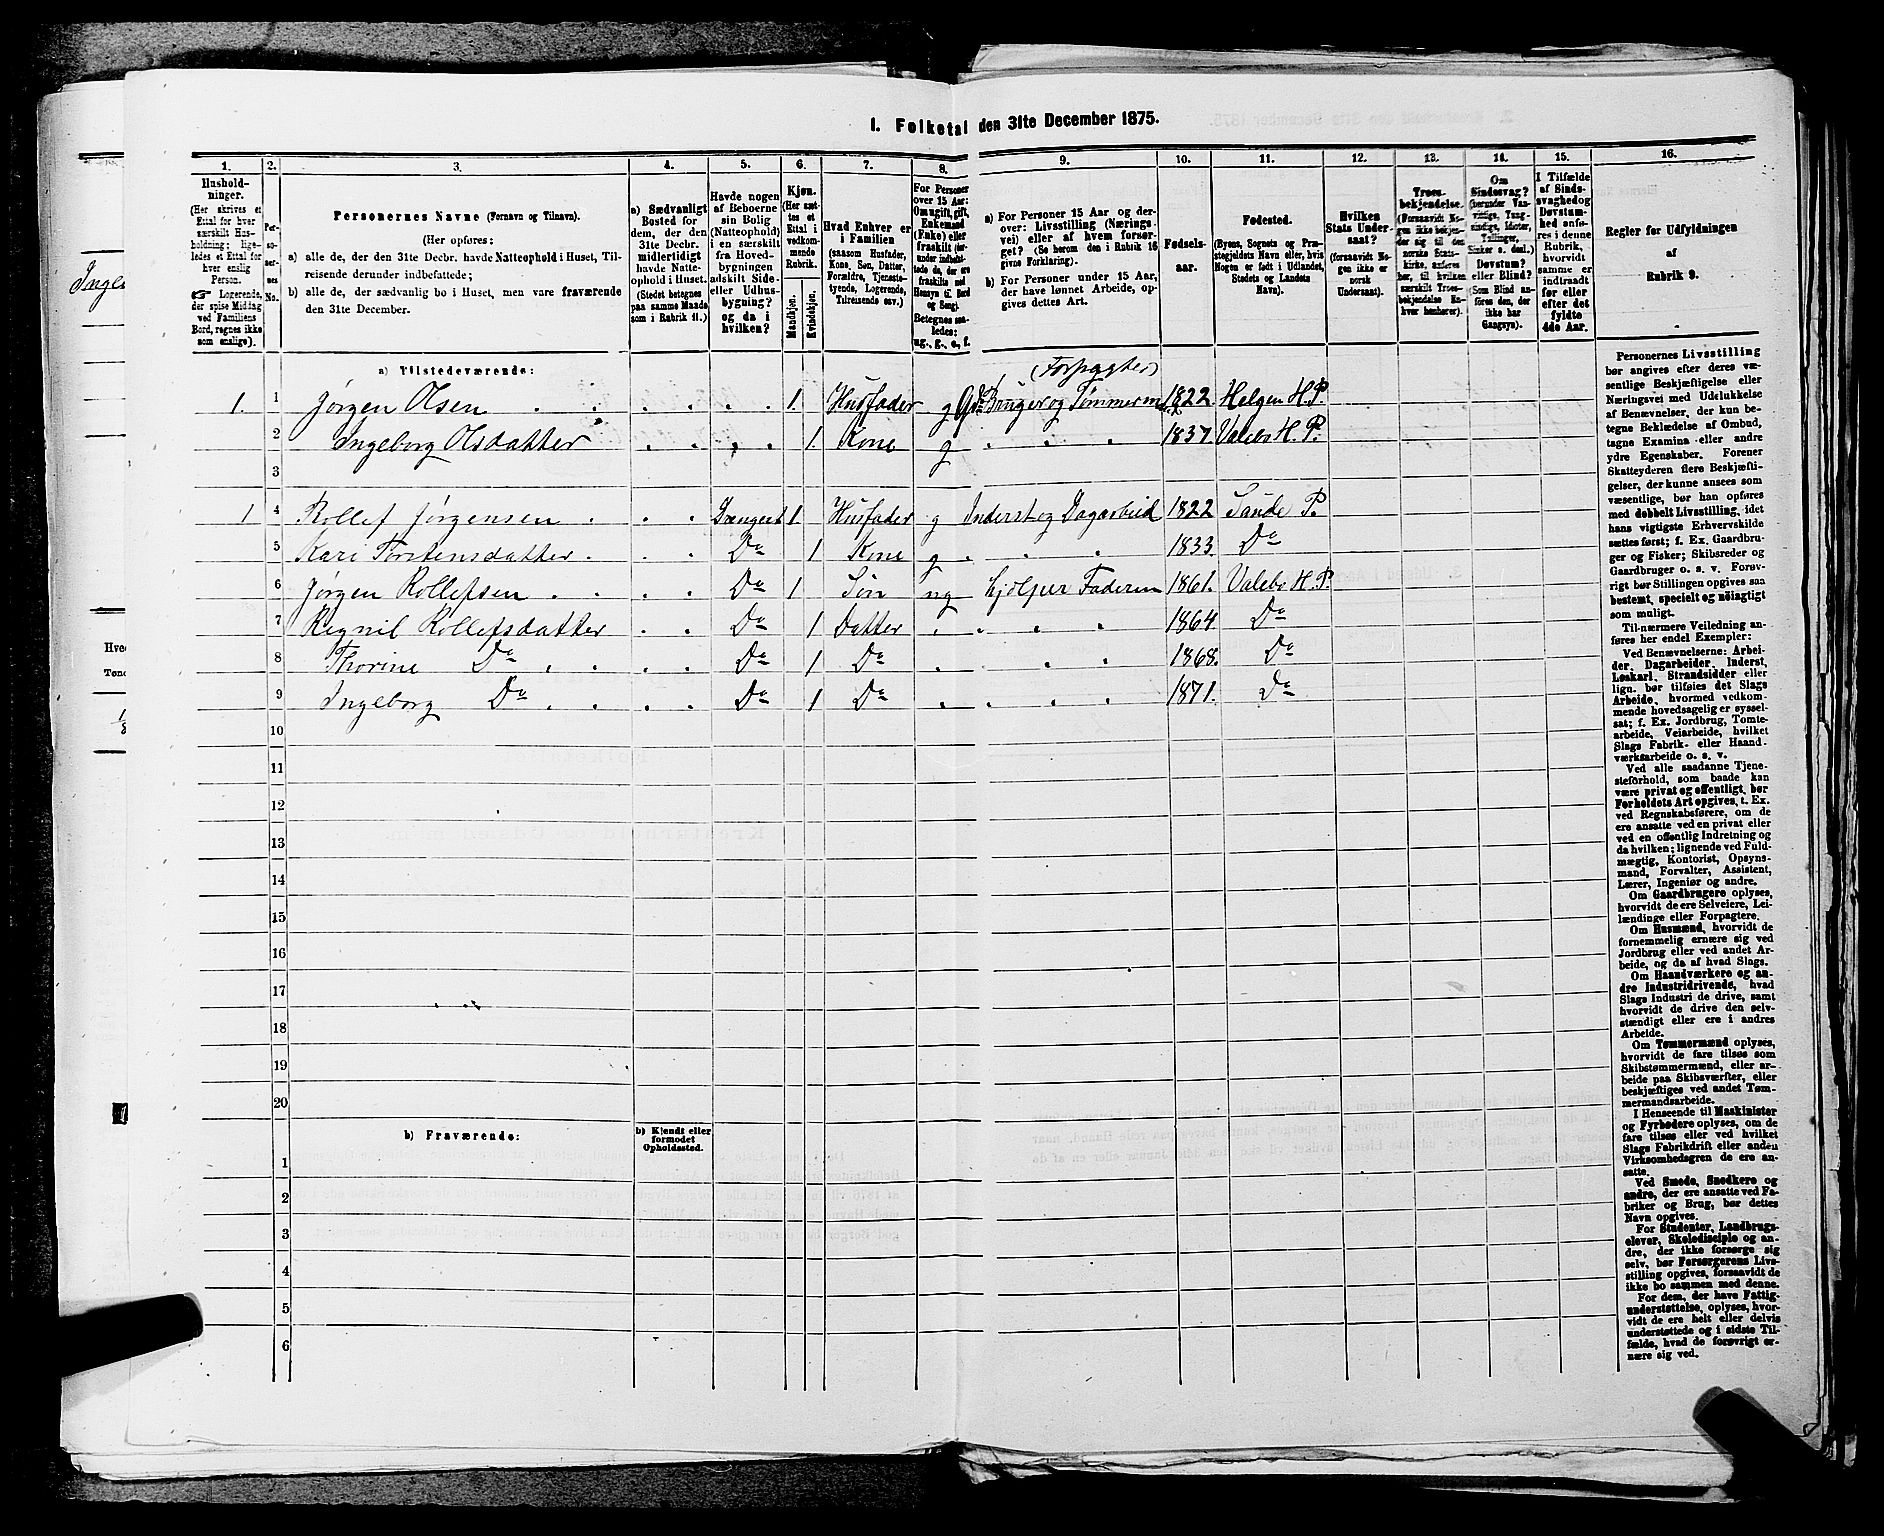 I. Folketal den 31te December 1875.
1. 2. 3. 4. 5. 6. 7. 8. 9. 10. 11. 12. 13. 14. 15. 16.
Hushold-
ninger.
(Her skrives et
Ettal for hver
særskilt Hus-
holdning; lige-
ledes et Ettal
for hver
enslig
Person.
☞ Logerende,
der spise Middag
ved Familiens
Bord, regnes ikke
som enslige).
Per-
so-
ner-
nes
No.
Personernes Navne (Fornavn og Tilnavn).
(Her opføres:
a) alle de, der den 31te Decbr. havde Natteophold i Huset, Til-
reisende derunder indbefattede;
b) alle de, der sædvanlig bo i Huset, men vare fraværende
den 31te December.
a) Sædvanligt
Bosted for
dem, der den
31te Decbr.
midlertidigt
havde Natte-
ophold i Huset.
(Stedet betegnes
paa samme Maade
som i Rubrik 11.)
Havde nogen
af Beboerne
sin Bolig
(Natteophold)
i en særskilt
fra Hoved-
bygningen
adskilt Side-
eller Udhus-
bygning?
og da i
hvilken?
Kjøn.
(Her sæt-
tes et
Ettal i
vedkom-
mende
Rubrik.
Mandkjøn.
Kvindekjøn.
Hvad Enhver er
i Familien
(saasom Husfader,
Kone, Søn, Datter,
Forældre, Tjeneste-
tyende, Logerende,
Tilreisende osv.)
For Personer
over 15 Aar:
Om ugift, gift,
Enkemand
(Enke) eller
fraskilt
Betegnes saa-
ledes:
ug., g., e., f.
a) For Personer 15 Aar og der-
over: Livsstilling (Nærings-
vei) eller af hvem forsør-
get? (Se herom den i Rubrik 16
givne Forklaring).
b) For Personer under 15 Aar,
der have lønnet Arbeide, op-
gives dettes Art.
Fødsels-
aar.
Fødested.
(Byens, Sognets og Præ-
stegjeldets Navn eller, hvis
Nogen er født i Udlandet,
Stedets og Landets
Navn).
Hvilken
Stats Under-
saat?
(forsaavidt No-
gen ikke er
norsk
Undersaat).
Troes-
bekjendelse.
(Forsaavidt No-
gen ikke bekjen-
der sig til den
norske Stats-
kirke, anføres
her, til hvilken
særskilt Troes-
bekjendelse En-
hver henhører).
Om
Sindssvag?
(herunder Van-
vittige, Tung-
sindige, Idioter,
Tullinger,
Sinker o. desl.)
Døvstum?
eller Blind?
(Som Blind an-
føres den, der
ikke har
Gangsyn).
I Tilfælde
af Sinds-
svaghed og
Døvstum-
hed anfø-
res i denne
Rubrik,
hvorvidt
samme er
indtraadt
før eller
efter det
fyldte
4de Aar.
Regler for Udfyldningen
af
Rubrik 9.
a) Tilstedeværende:
(Forpagter)
1. 1 Jørgen Olsen 1. Husfader g Bruger og Tømmerm 1822 Helgen H. P.
2 Ingeborg Olsdatter 1. Kone g 1837 Valebø H. P.
3
1 4 Rollef Jørgensen Drengest 1. Husfader g Inderst og Dagarbeid 1822 Saude P.
5 Kari Torstensdatter Do 1 Kone g 1833. Do
6 Jørgen Rollefsen Do 1 Søn ug hjælper Faderen 1861. Valebø H. P
7 Regnil Rollefsdatter Do 1 Datter 1864 Do
8 Thorine Do Do 1 Do 1868. Do
9 Ingeborg Do Do 1 Do 1871. Do
10
11
12
13
14
15
16
17
18
19
20
b) Fraværende:
b) Kjendt eller
formodet
Opholdssted.
1
2
3
4
5
6
Personernes Livsstilling
bør angives efter deres væ-
sentlige Beskjæftigelse eller
Næringsvei med Udelukkelse
af Benævnelser, der kun be-
tegne Beklædelse af Ombud,
tagne Examina eller andre
ydre Egenskaber. Forener
Skatteyderen flere Beskjæfti-
gelser, der kunne ansees som
væsentlige, bør han opføres
med dobbelt Livsstilling, idet
hans vigtigste Erhvervskilde
sættes først; f. Ex. Gaardbru-
ger og Fisker; Skibsreder og
Gaardbruger o. s. v. Forøv-
rigt bør Stillingen opgives saa
bestemt, specielt og nøiagtigt
som muligt.
Til nærmere Veiledning an-
føres her endel Exempler:
Ved Benævnelserne: Arbei-
der, Dagarbeider, Inderst,
Løskarl, Strandsidder eller
lign. bør tilføies det Slags
Arbeide, hvormed vedkom-
mende hovedsagelig er syssel-
sat; f. Ex. Jordbrug, Tomte-
arbeide, Veiarbeide, hvilket
Slags Fabrik- eller Haand-
værksarbeide o. s. v.
Ved alle saadanne Tjene-
steforhold, som baade kan
være privat og offentligt, bør
Forholdets Art opgives, t. Ex.
ved Regnskabsførere, om de
ere ansatte ved en privat eller
ved en offentlig Indretning og
da hvilken; lignende ved Fuld-
mægtig, Kontorist, Opsyns-
mand, Forvalter, Assistent,
Lærer, Ingeniør og andre.
Om Gaardbrugere oplyses,
hvorvidt de ere Selveiere, Lei-
lændinge eller Forpagtere.
Om Husmænd, hvorvidt de
fornemmelig ernære sig ved
Jordbrug eller ved andet Ar-
beide, og da af hvad Slags.
Om Haandværkere og an-
dre Industridrivende, hvad
Slags Industri de drive, samt
hvorvidt de drive den selv-
stændigt eller ere i andres
Arbeide.
Om Tømmermænd oplyses,
hvorvidt de fare tilsøs som
Skibstømmermænd, eller ar-
beide paa Skibsværfter, eller
beskjæftiges ved andet Tøm-
mermandsarbeide.
I Henseende til Maskinister
og Fyrbødere oplyses, om de
fare tilsøs eller ved hvilket
Slags Fabrikdrift eller anden
Virksomhedsgren de ere an-
satte.
Ved Smede, Snedkere og
andre, der ere ansatte ved Fa-
briker og Brug, bør dettes
Navn opgives.
For Studenter, Landbrugs-
elever, Skoledisciple og an-
dre, der ikke forsørge sig
selv, bør Forsørgerens Livs-
stilling opgives, forsaavidt de
ikke bo sammen med denne.
For dem, der have Fattig-
understøttelse, oplyses, hvor-
vidt de ere helt eller delvis
understøttede og i sidste Til-
fælde, hvad de forøvrigt er-
nære sig ved.